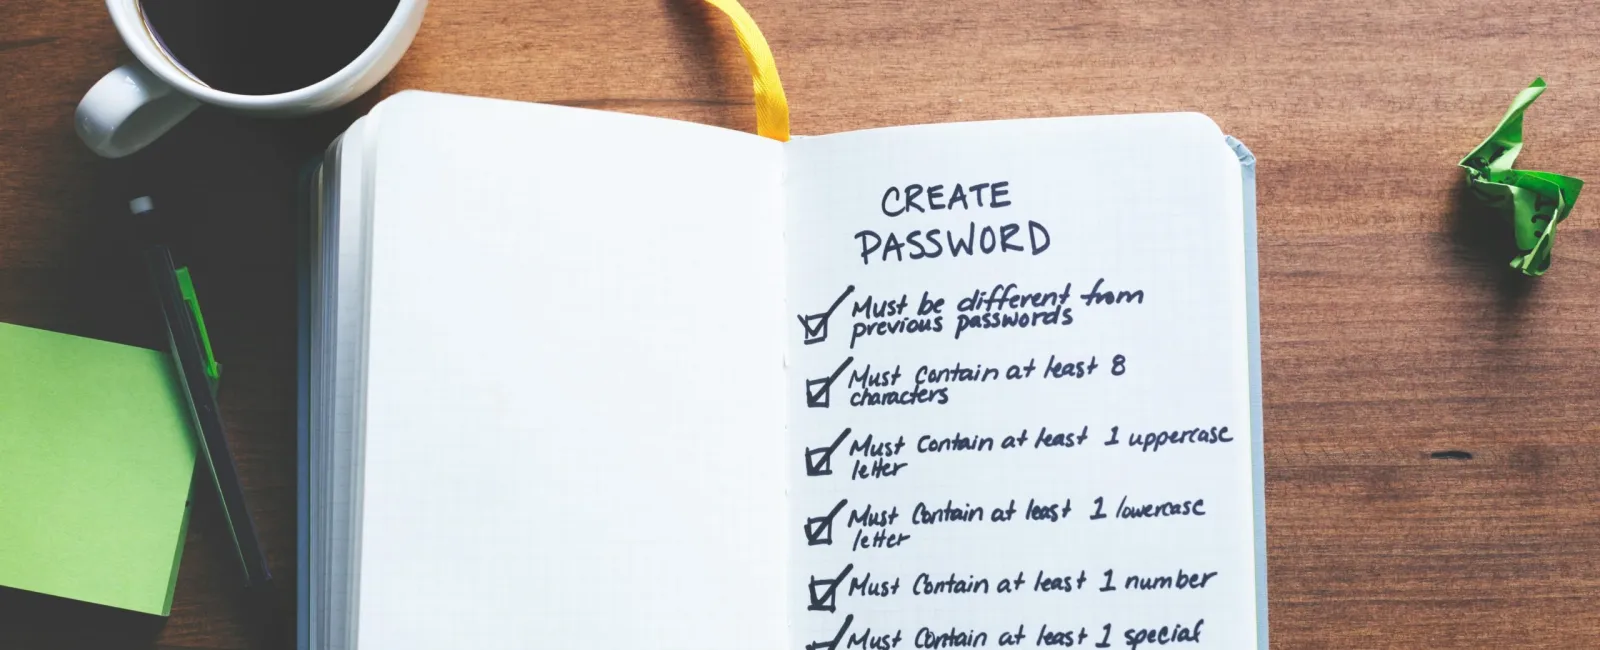 CREATE
PASSWORD
Must be different from
previous passwords
Must contain at least 8
characters
Must contain at least 1 uppercase
letter
Must contain at least 1 lowercase
letter
Must contain at least 1 number
Must contain at least 1 special